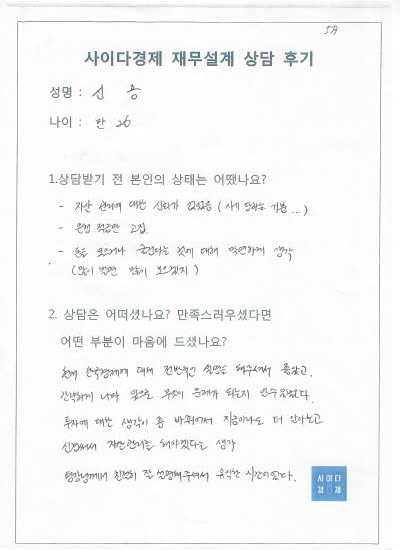 5月
사이다경제 재무설계 상담 후기
성명 : 신 용
나이 : 만 26
1.상담받기 전 본인의 상태는 어땠나요?
- 자산 관리에 대한 신뢰가 없었음 ( 사기 당하는 기분 ... )
- 은행 적금만 고집
- 돈을 모으거나 굴린다는 것에 대해 막연하게 생각
(많이 벌면 많이 모으겠지)
2. 상담은 어떠셨나요? 만족스러우셨다면
어떤 부분이 마음에 드셨나요?
현재 한국경제에 대해 전반적인 설명을 해주셔서 좋았고,
간략하게 나마 앞으로 무엇이 문제가 되는지 알 수 있었다.
투자에 대한 생각이 좀 바뀌어서 지금이나도 더 알아보고
신경써서 자산관리를 해야겠다는 생각
팀장님께서 친절히 잘 설명해주셔서 유익한 시간이었다.
사이다
경제